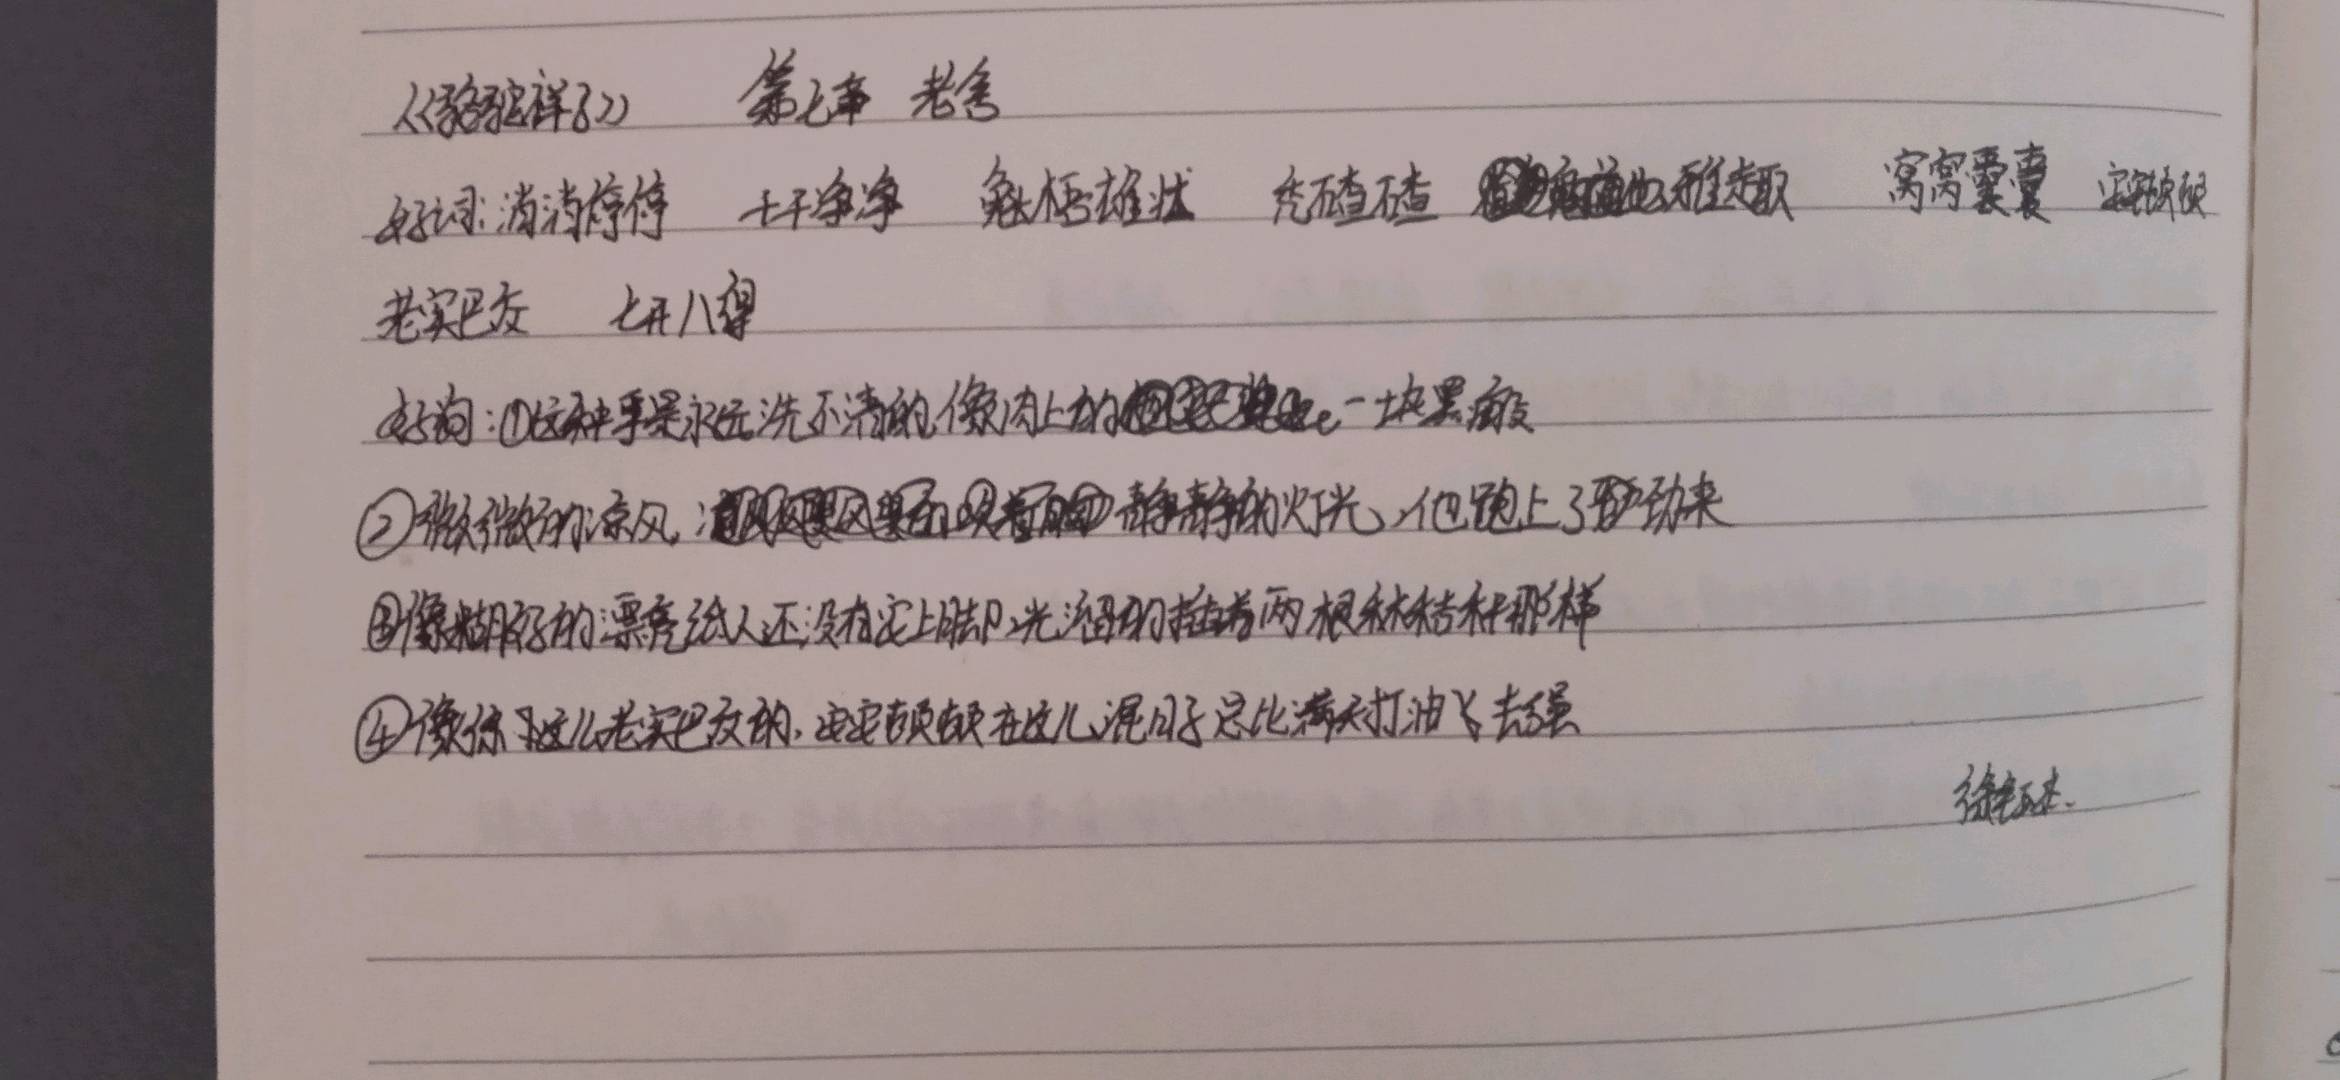 《骆驼祥子》 第七章 老舍
好词:消消停停 干干净净 魁梧雄壮 秃碴碴 雅趣 窝窝囊囊 安安顿顿
老实巴交 七开八得
好词:①这种事是永远洗不清的,像肉上的 一块黑瘢
②微微的凉风, 静静的灯光,他跑上了劲来
③像糊好的漂亮纸人还没有安上脚,光溜的插着两根秫秸秆那样
④像你这么老实巴交的,安安顿顿在这儿混日子总比满天打油飞去强